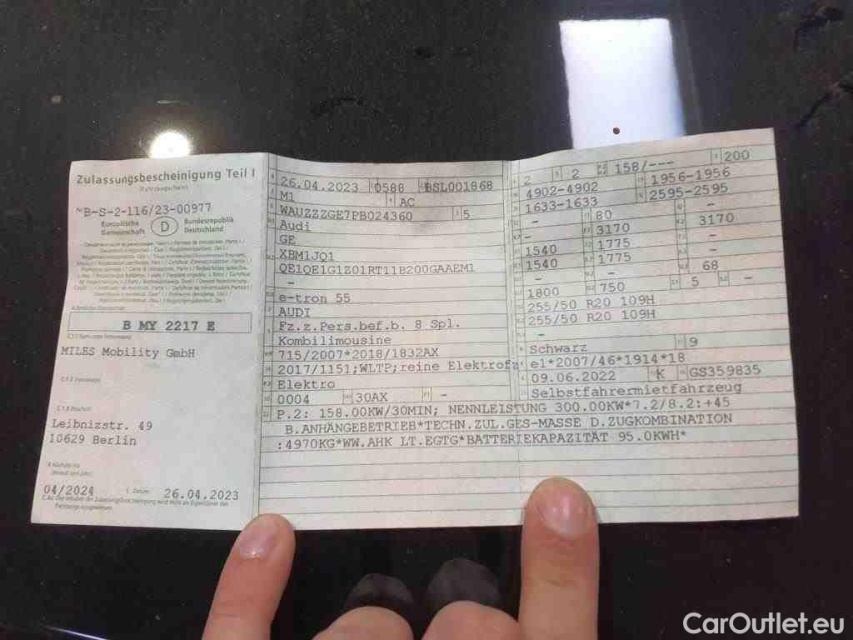 Zulassungsbescheinigung Teil I
B-S-2-116/23-00977
Europäische Gemeinschaft
D
Bundesrepublik Deutschland
B MY 2217 E
MILES Mobility GmbH
Leibnizstr. 49
10629 Berlin
04/2024
26.04.2023
26.04.2023 0588 BSL001868
M1 AC
WAUZZZGE7PB024360 5
Audi
GE
XBM1JQ1
QE1QE1G1Z01RT11B200GAAEM1
-
e-tron 55
AUDI
Fz.z.Pers.bef.b. 8 Spl.
Kombilimousine
715/2007*2018/1832AX
2017/1151;WLTP;reine Elektrofz
Elektro
0004 30AX -
P.2: 158.00KW/30MIN; NENNLEISTUNG 300.00KW*7.2/8.2:+45
B.ANHÄNGEBETRIEB*TECHN.ZUL.GES-MASSE D.ZUGKOMBINATION
:4970KG*WW.AHK LT.EGTG*BATTERIEKAPAZITÄT 95.0KWH*
2 2 158/--- 200
4902-4902 1956-1956
1633-1633 2595-2595
- 80 -
- 3170 3170
1540 1775 -
1540 1775 -
- - 68
1800 750 5 -
255/50 R20 109H
255/50 R20 109H
-
Schwarz 9
e1*2007/46*1914*18
09.06.2022 K GS359835
Selbstfahrermietfahrzeug
CarOutlet.eu